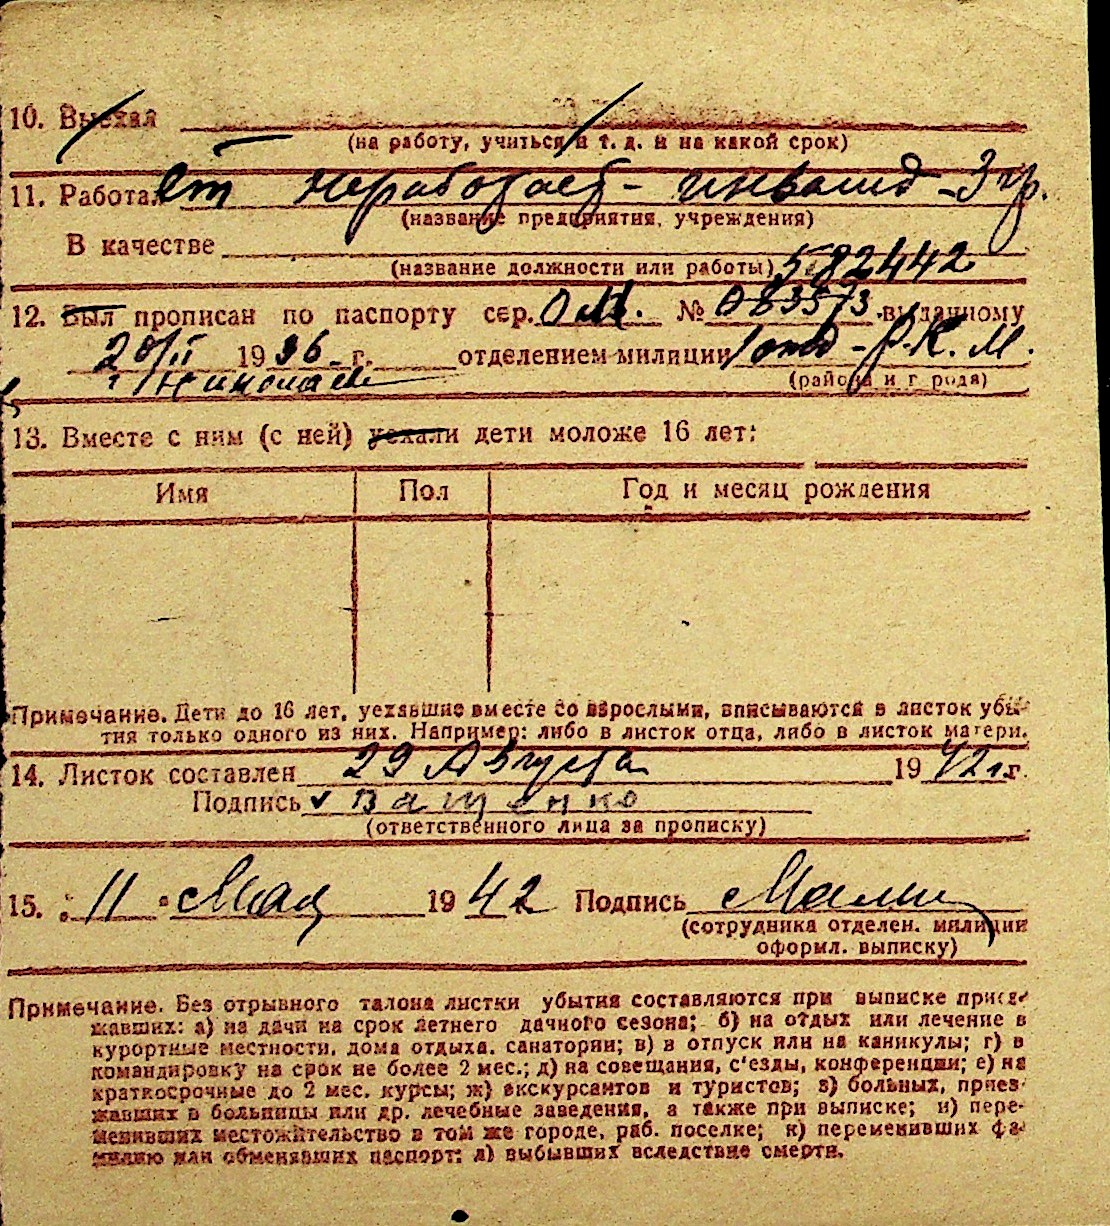 10. Выехал
(на работу, учиться и т. д. и на какой срок)
11. Работает не работает - инвалид - 3 гр.
(название предприятия, учреждения)
В качестве
(название должности или работы) 582442
12. Был прописан по паспорту сер. № 083573 выданному
20/II 1936 г. отделением милиции 1 отд - Р.К.М.
г. Николаев (района и города)
13. Вместе с ним (с ней) уехали дети моложе 16 лет:
Имя Пол Год и месяц рождения
Примечание. Дети до 16 лет, уехавшие вместе со взрослыми, вписываются в листок убы-
тия только одного из них. Например: либо в листок отца, либо в листок матери.
14. Листок составлен 29 Августа 1942 г.
Подпись Ващенко
(ответственного лица за прописку)
15. "11" Мая 1942 Подпись
(сотрудника отделен. милиции
оформл. выписку)
Примечание. Без отрывного талона листки убытия составляются при выписке приез-
жавших: а) на дачи на срок летнего дачного сезона; б) на отдых или лечение в
курортные местности, дома отдыха, санатории; в) в отпуск или на каникулы; г) в
командировку на срок не более 2 мес.; д) на совещания, с'езды, конференции; е) на
краткосрочные до 2 мес. курсы; ж) экскурсантов и туристов; з) больных, приез-
жавших в больницы или др. лечебные заведения, а также при выписке; и) пере-
менивших местожительство в том же городе, раб. поселке; к) переменивших фа-
милию или обменявших паспорт; л) выбывших вследствие смерти.